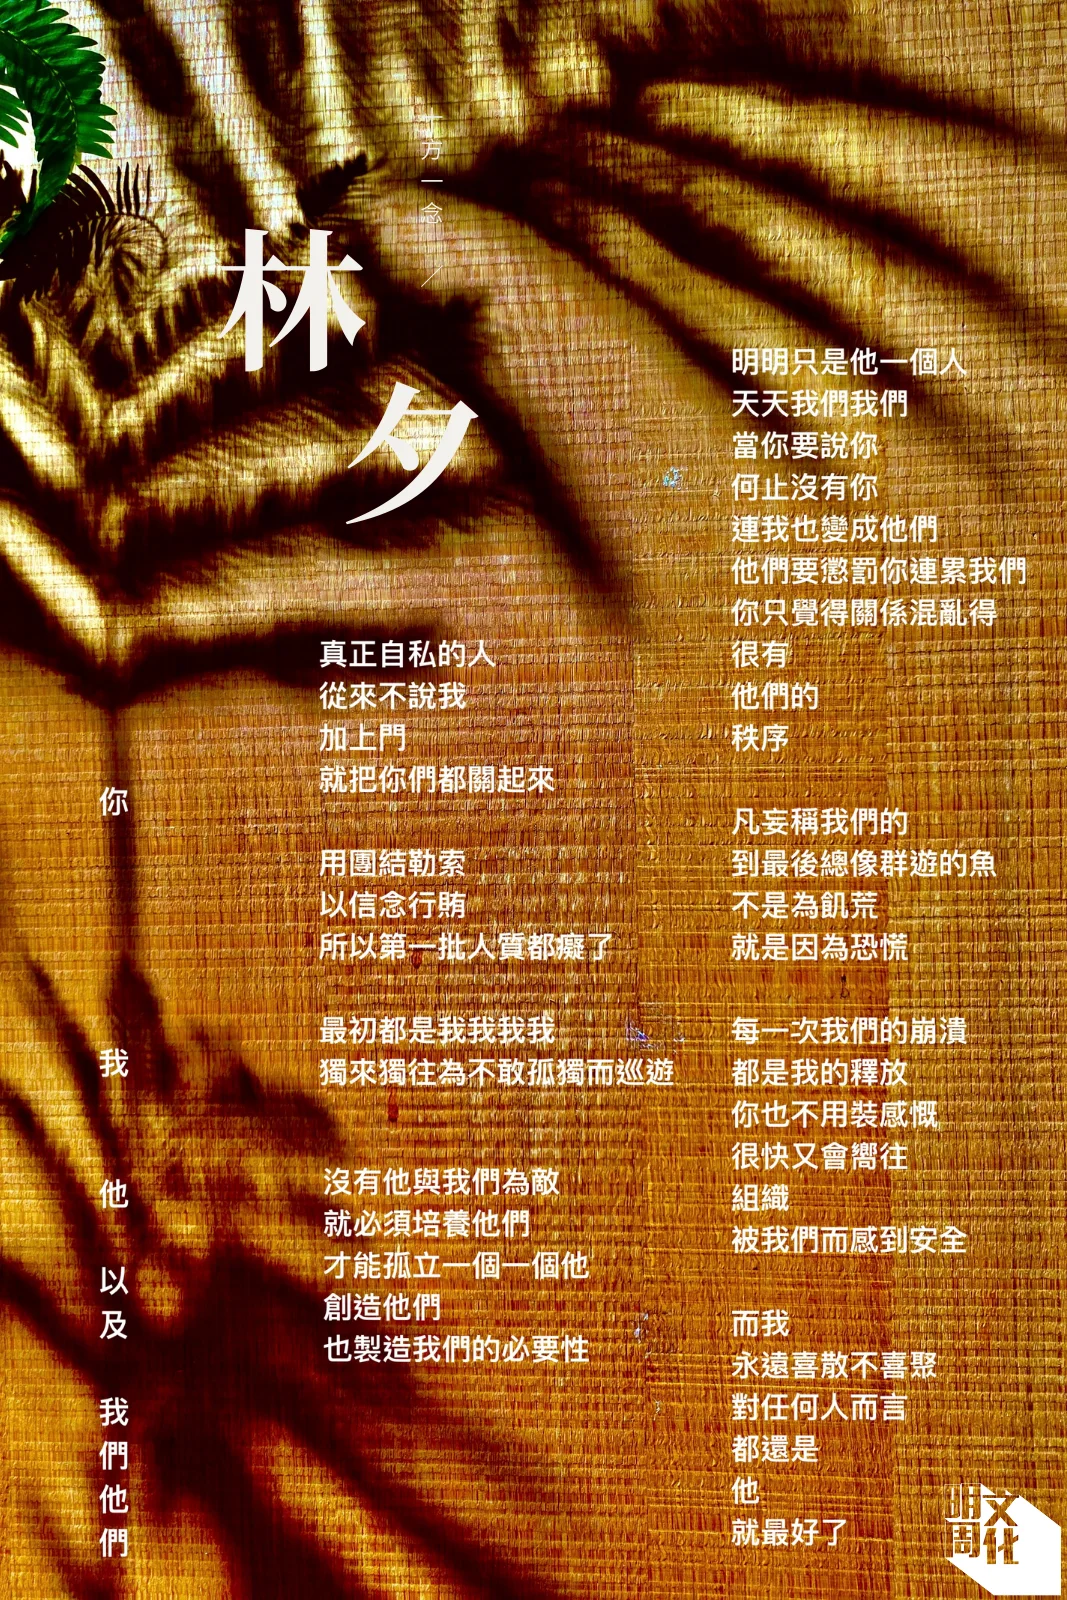 一方一念／
林夕
你 我 他 以及 我們他們
真正自私的人
從來不說我
加上門
就把你們都關起來
用團結勒索
以信念行賄
所以第一批人質都癡了
最初都是我我我我
獨來獨往為不敢孤獨而巡遊
沒有他與我們為敵
就必須培養他們
才能孤立一個一個他
創造他們
也製造我們的必要性
明明只是他一個人
天天我們我們
當你要說你
何止沒有你
連我也變成他們
他們要懲罰你連累我們
你只覺得關係混亂得
很有
他們的
秩序
凡妄稱我們的
到最後總像群遊的魚
不是為飢荒
就是因為恐慌
每一次我們的崩潰
都是我的釋放
你也不用裝感慨
很快又會嚮往
組織
被我們而感到安全
而我
永遠喜散不喜聚
對任何人而言
都還是
他
就最好了
明周文化